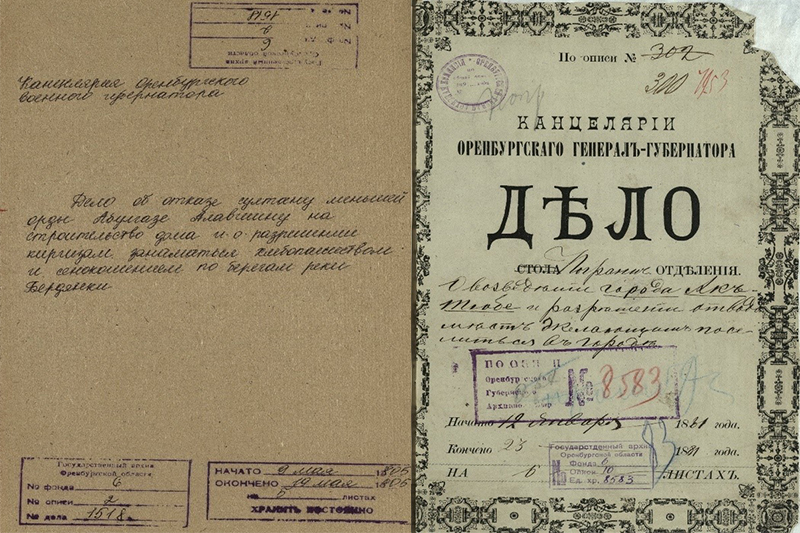 Канцелярия оренбургского
военного губернатора
Дело об отказе султану меньшей
орды Абулгазе Алавшину на
строительство дома и о разрешении
киргизам заниматься хлебопашеством
и сенокошением по берегам реки
Берденки
Государственный архив
Оренбургской области
№ фонда 6
№ описи 2
№ дела 1518
НАЧАТО 9 мая 1805
ОКОНЧЕНО 19 мая 1805
на 5 листах
ХРАНИТЬ ПОСТОЯННО
По описи № 302
300 7153
КАНЦЕЛЯРІИ
ОРЕНБУРГСКАГО ГЕНЕРАЛЪ-ГУБЕРНАТОРА
ДѢЛО
СТОЛА Погранич ОТДѢЛЕНІЯ.
О возведении города Акъ-
Тюбе и разрешении отвода
мѣстъ желающимъ посе-
литься въ городѣ
ПО ОПИСИ
Оренбургского
№ 8583
Начато 12 января 1881 года.
Кончено 23 1881 года.
НА 6 ЛИСТАХЪ.
Государственный архив
Оренбургской области
Фонд 6
Опись 10
Ед. хр. 8583